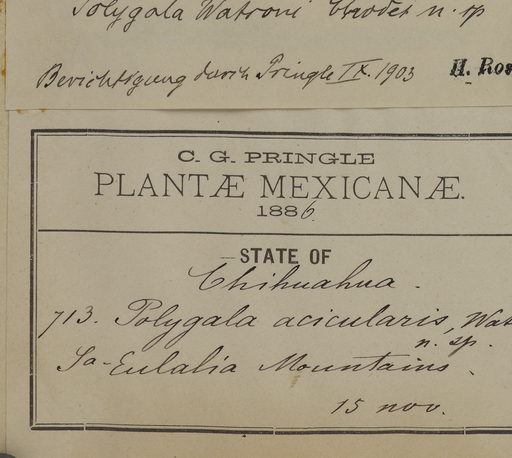 Polygala Watsoni Chodat n. sp
Berichtigung durch Pringle IX. 1903
H. Ros
C. G. PRINGLE
PLANTÆ MEXICANÆ.
1886
STATE OF
Chihuahua.
713. Polygala acicularis, Wat
n. sp.
Sa Eulalia Mountains.
15 nov.